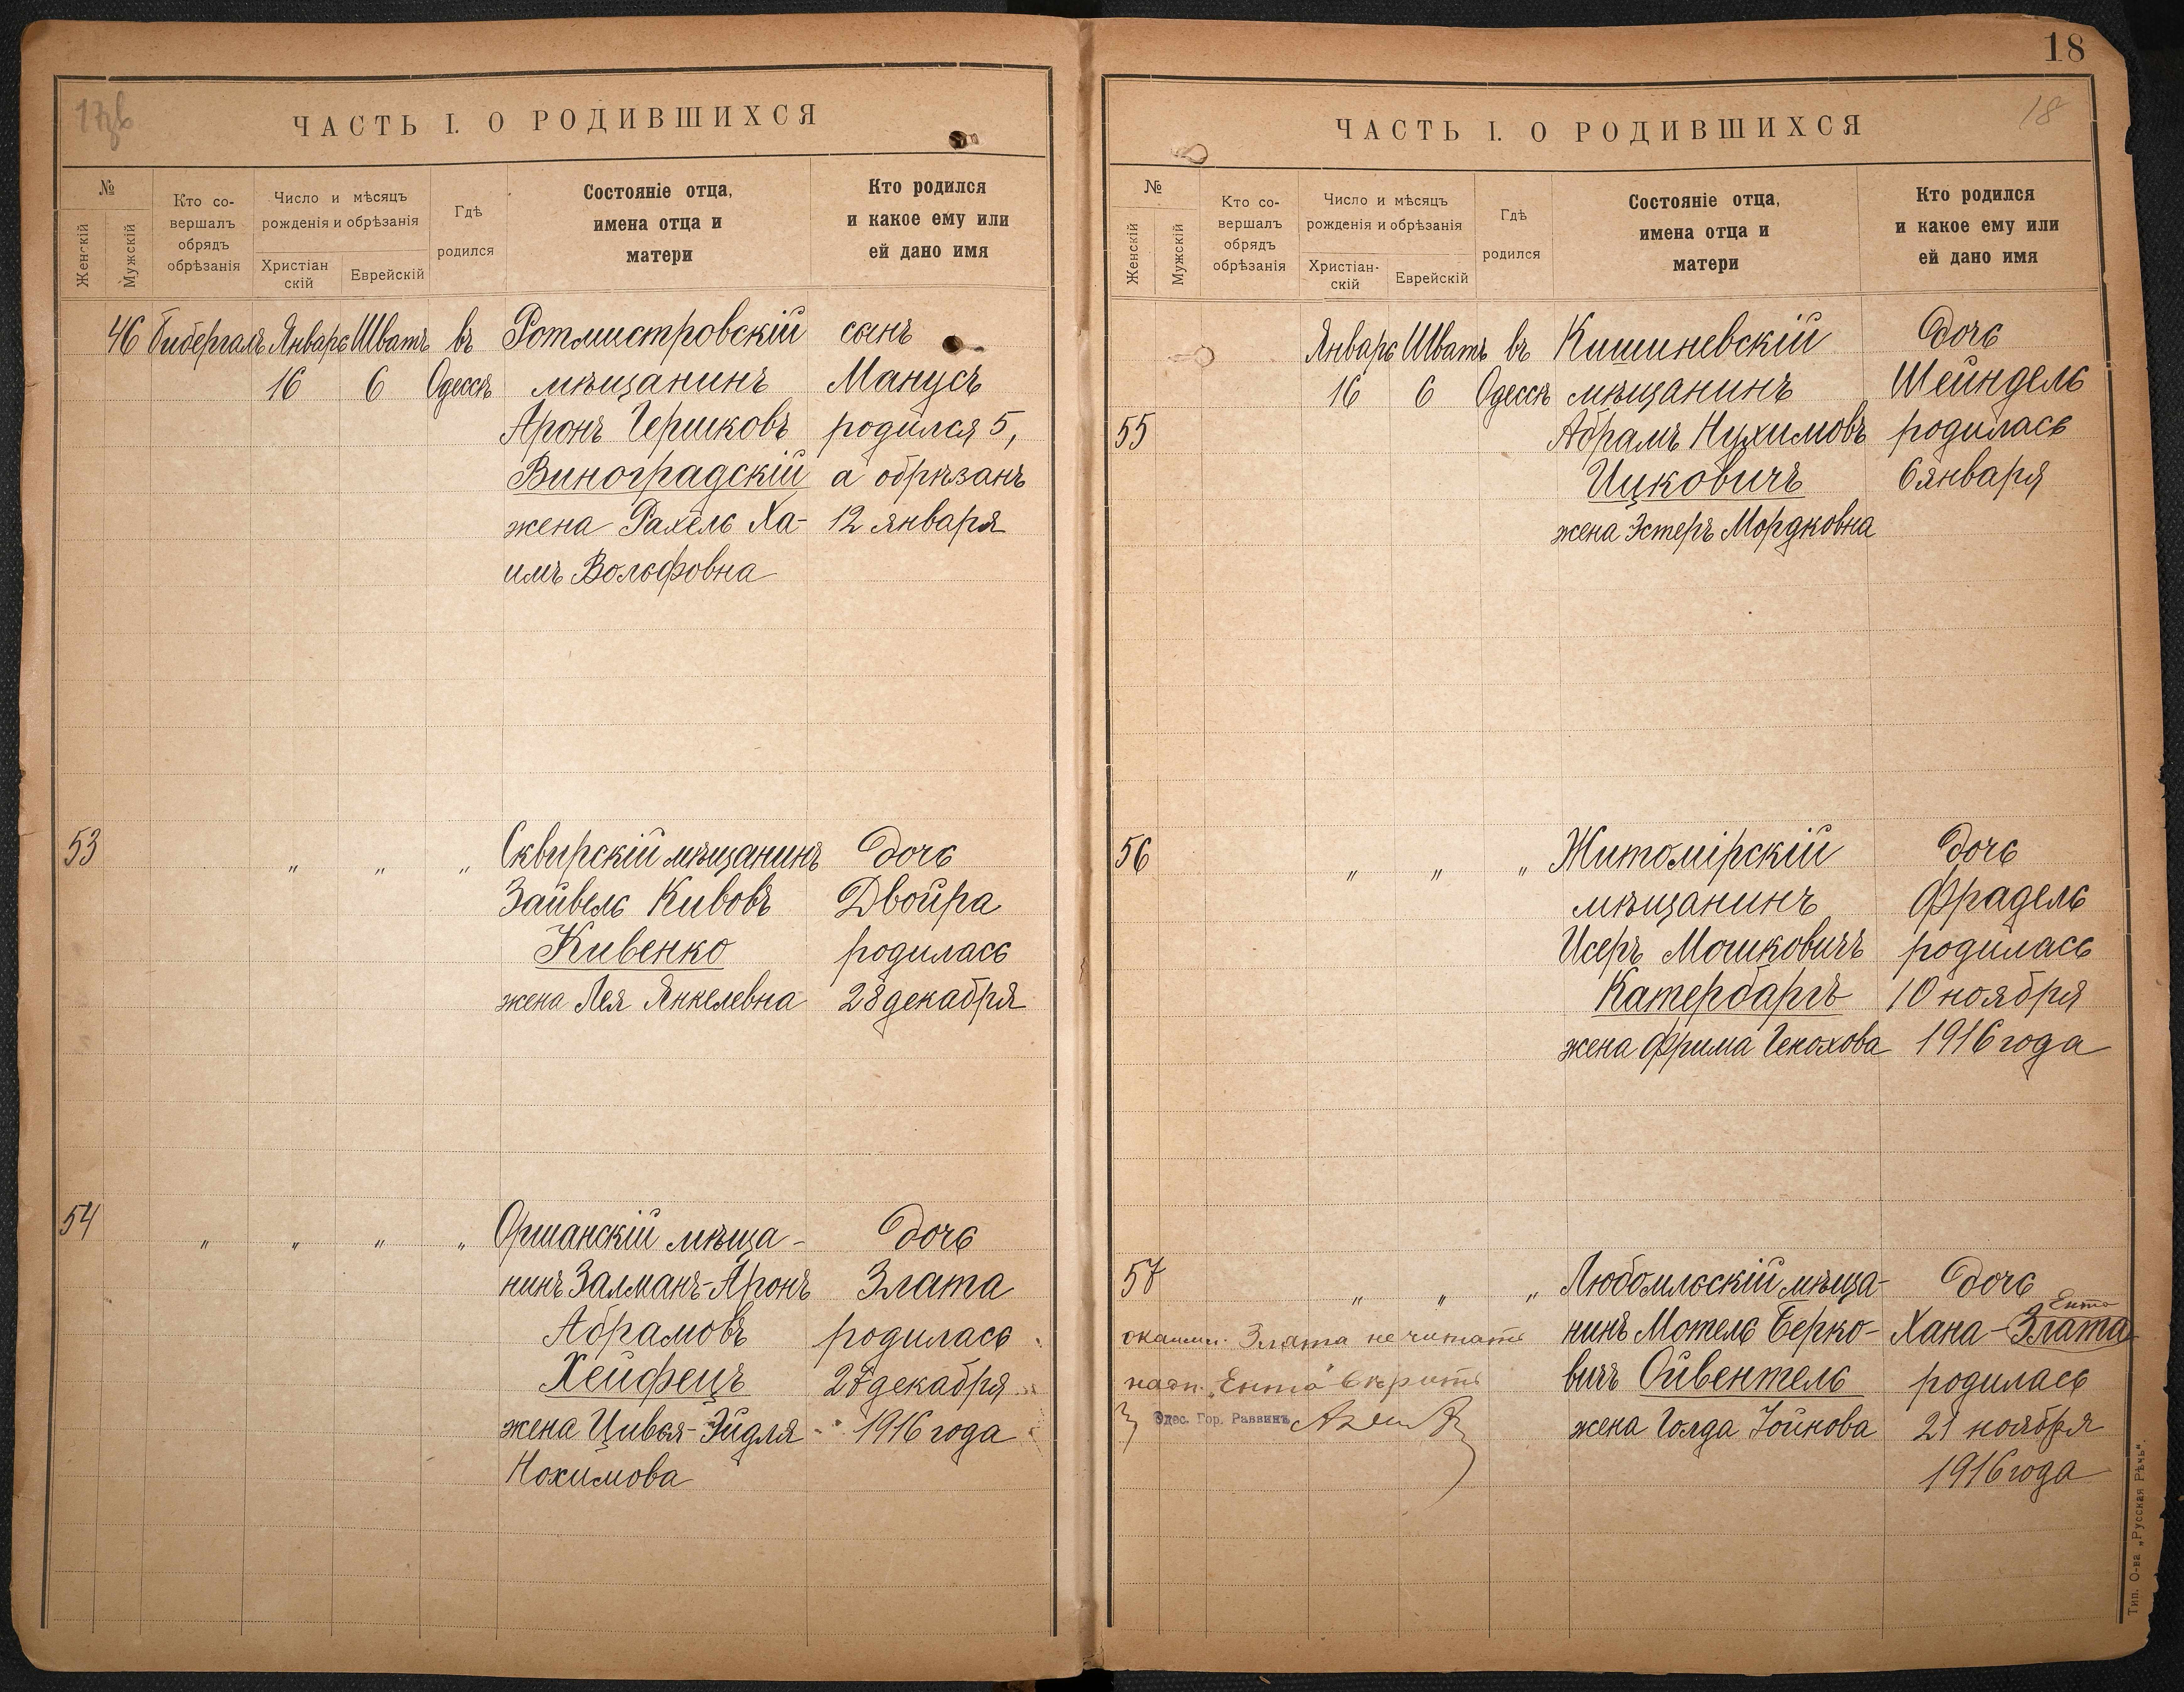 17об
ЧАСТЬ I. О РОДИВШИХСЯ
№
Женскій
Мужскій
Кто со-
вершалъ
обрядъ
обрѣзанія
Число и мѣсяцъ
рожденія и обрѣзанія
Христіан
скій
Еврейскій
Гдѣ
родился
Состояніе отца,
имена отца и
матери
Кто родился
и какое ему или
ей дано имя
46 Бибергалъ Январь Шватъ въ Ротмистровскій сынъ
16 6 Одессѣ мѣщанинъ Манусъ
Аронъ Гершковъ родился 5,
Виноградскій а обрѣзанъ
жена Рахель Ха- 12 января
имъ Вольфовна
53 " " " Сквирскій мѣщанинъ дочь
Зайвель Кивовъ Двойра
Кивенко родилась
жена Лея Янкелевна 28 декабря
54 " " " " Оршанскій мѣща- дочь
нинъ Залманъ-Аронъ Злата
Абрамовъ родилась
Хейфецъ 27 декабря
жена Цивья-Эйдля 1916 года
Нохимова
18
18
ЧАСТЬ I. О РОДИВШИХСЯ
№
Женскій
Мужскій
Кто со-
вершалъ
обрядъ
обрѣзанія
Число и мѣсяцъ
рожденія и обрѣзанія
Христіан-
скій
Еврейскій
Гдѣ
родился
Состояніе отца,
имена отца и
матери
Кто родился
и какое ему или
ей дано имя
Январь Шватъ въ Кишиневскій дочь
16 6 Одессѣ мѣщанинъ Шейндель
55 Абрамъ Нухимовъ родилась
Ицковичъ 6 января
жена Эстеръ Мордковна
56 " " " Житомірскій дочь
мѣщанинъ Фрадель
Исеръ Мошковичъ родилась
Катербаргъ 10 ноября
жена Фрима Генохова 1916 года
57 " " " Любомльскій мѣща- дочь
Ента
Злата не читать нинъ Мотель Берко- Хана-Злата
надп. „Ента" вѣрить вичъ Ойвентель родилась
Одес. Гор. Раввинъ жена Голда Іойнова 21 ноября
1916 года
Тип. О-ва „Русская Рѣчь".